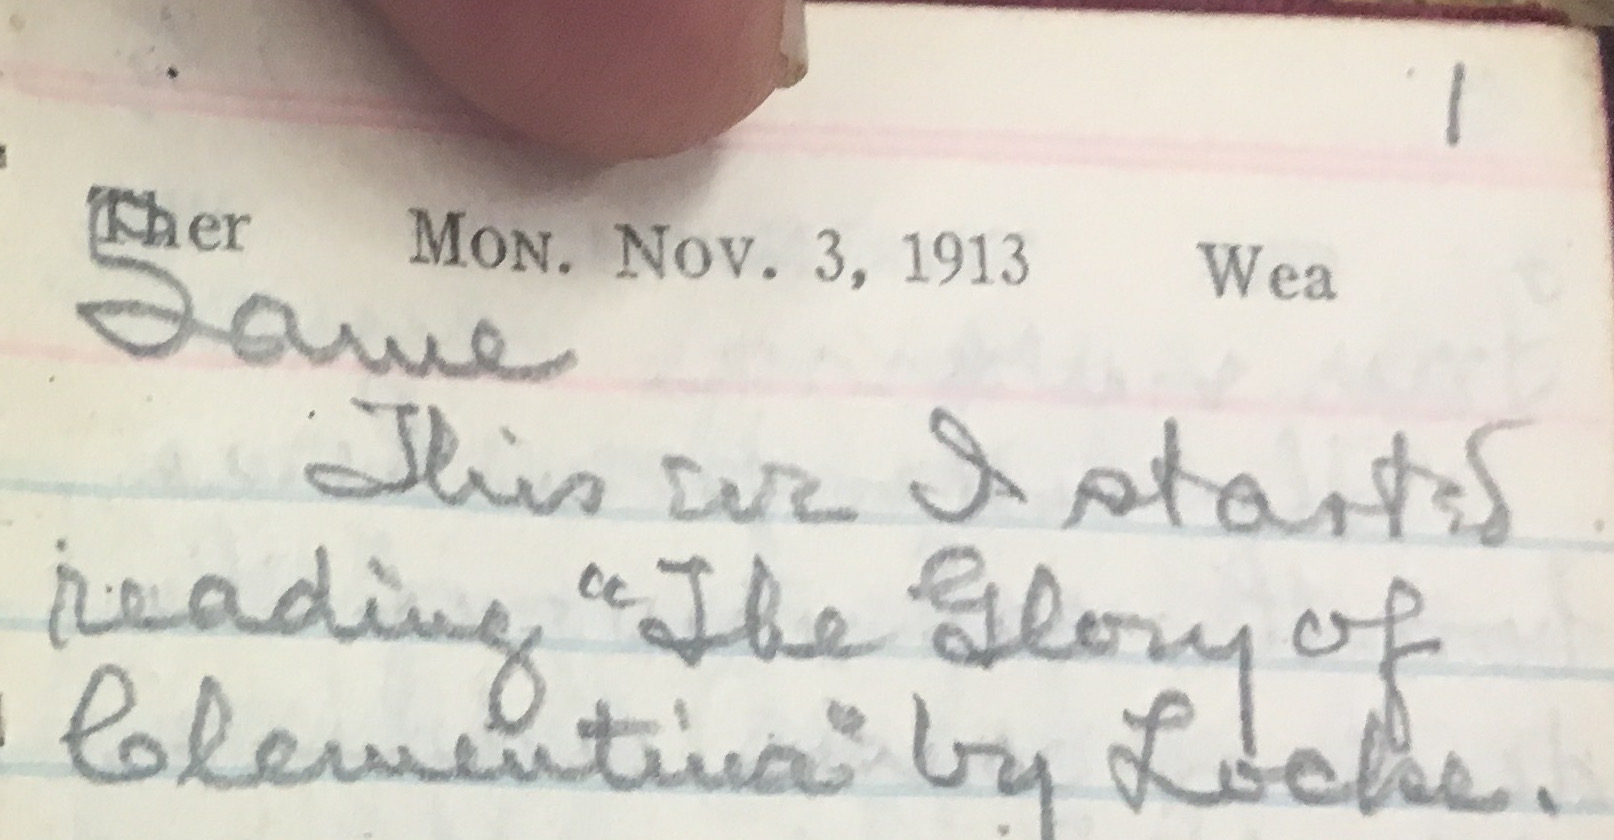 1
Ther Mon. Nov. 3, 1913 Wea
Same
This eve I started
reading "The Glory of
Clementina" by Locke.